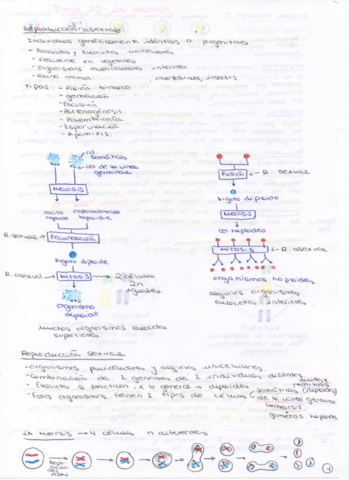 Tema 10 - La Meiosis
Reproducción asexual
Individuos genéticamente idénticos a progenitores
- Procariotas y Eucariotas unicelulares
- Frecuente en vegetales
- Organismos pluricelulares inferiores
- Reino animal invertebrados, insectos
Tipos - Fisión binaria
- gemación
- Escisión
- Partenogénesis
- Poliembrionía
- Esporulación
- Apomixis
cél. somáticas
cél de la línea germinal
MEIOSIS
ovocito haploide espermatozoide haploide
R. sexual → Fecundación
zigoto diploide
R. asexual → MITOSIS → 2 células
2n
iguales
organismo diploide
Muchos organismos eucariotas superiores
Fusión → R. sexual
zigoto diploide
MEIOSIS
cél haploides
MITOSIS → R. asexual
organismos haploides
algunos organismos eucariotas inferiores
Reproducción sexual
- Organismos pluricelulares y algunos unicelulares
- Combinación de 2 genomas de 2 individuos distintos
- Eucariotas la practican, x lo general diploides
- Estos organismos tienen 2 tipos de células - somáticas (diploides)
- de la línea germinal
meiosis
gametos haploides
LA MEIOSIS → 4 células n diferentes